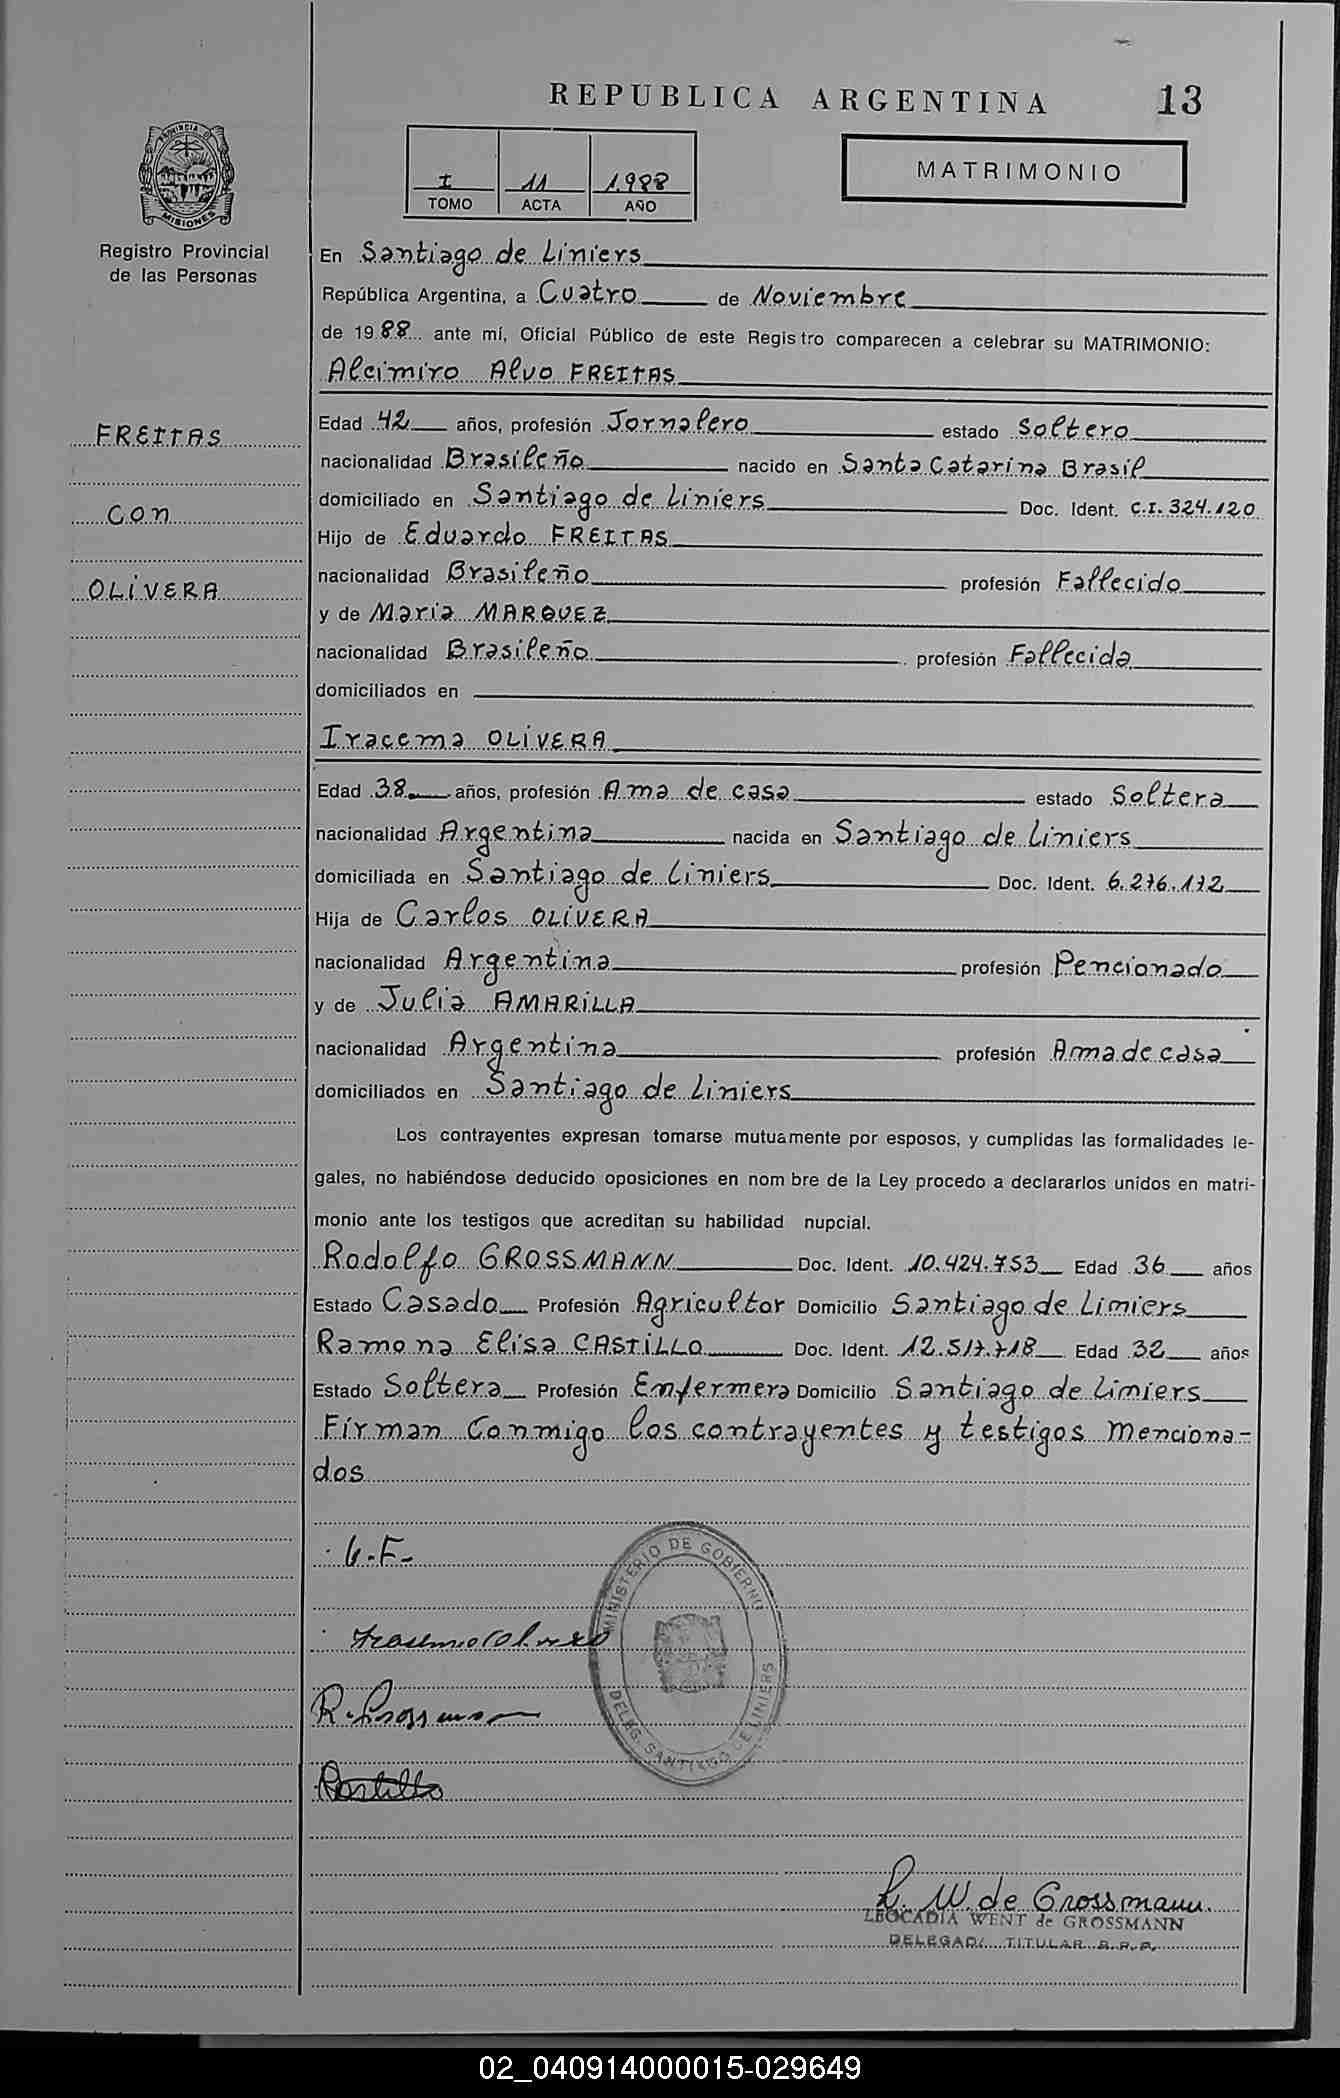 REPUBLICA ARGENTINA 13
PROVINCIA DE
MISIONES
Registro Provincial
de las Personas
I 11 1.988
TOMO ACTA AÑO
MATRIMONIO
En Santiago de Liniers
República Argentina, a Cuatro de Noviembre
de 1988 ante mí, Oficial Público de este Registro comparecen a celebrar su MATRIMONIO:
Alcimiro Alvo FREITAS
FREITAS
CON
OLIVERA
Edad 42 años, profesión Jornalero estado Soltero
nacionalidad Brasileño nacido en Santa Catarina Brasil
domiciliado en Santiago de Liniers Doc. Ident. C.I. 324.120
Hijo de Eduardo FREITAS
nacionalidad Brasileño profesión Fallecido
y de Maria MARQUEZ
nacionalidad Brasileño profesión Fallecida
domiciliados en
Iracema OLIVERA
Edad 38 años, profesión Ama de casa estado Soltera
nacionalidad Argentina nacida en Santiago de Liniers
domiciliada en Santiago de Liniers Doc. Ident. 6.276.172
Hija de Carlos OLIVERA
nacionalidad Argentina profesión Pencionado
y de Julia AMARILLA
nacionalidad Argentina profesión Ama de casa
domiciliados en Santiago de Liniers
Los contrayentes expresan tomarse mutuamente por esposos, y cumplidas las formalidades le-
gales, no habiéndose deducido oposiciones en nombre de la Ley procedo a declararlos unidos en matri-
monio ante los testigos que acreditan su habilidad nupcial.
Rodolfo GROSSMANN Doc. Ident. 10.424.753 Edad 36 años
Estado Casado Profesión Agricultor Domicilio Santiago de Liniers
Ramona Elisa CASTILLO Doc. Ident. 12.517.718 Edad 32 años
Estado Soltera Profesión Enfermera Domicilio Santiago de Liniers
Firman Conmigo los contrayentes y testigos menciona-
dos
MINISTERIO DE GOBIERNO
DELEG. SANTIAGO DE LINIERS
R. Grossmann
L. W. de Grossmann.
LEOCADIA WENT de GROSSMANN
DELEGADA TITULAR R.P.P.
02_040914000015-029649